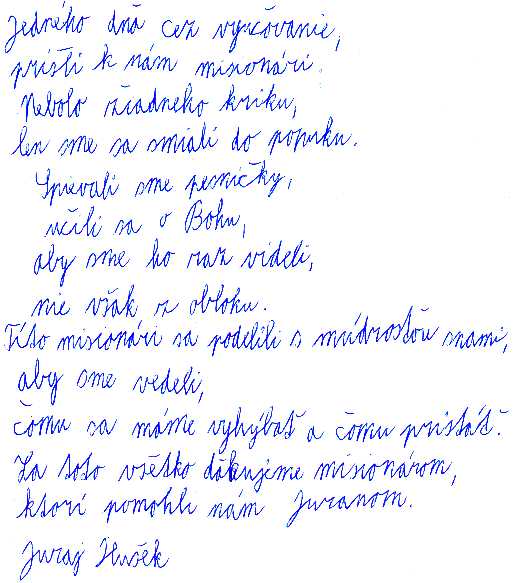 Jedného dňa cez vyučovanie,
prišli k nám misionári.
Nebolo žiadneho kriku,
len sme sa smiali do popuku.
Spievali sme pesničky,
učili sa o Bohu,
aby sme ho raz videli,
nie však z obloku.
Títo misionári sa podelili s múdrosťou snami,
aby sme vedeli,
čomu sa máme vyhýbať a čomu pristáť.
Za toto všetko ďakujeme misionárom,
ktorí pomohli nám Juranom.
Juraj Hušek